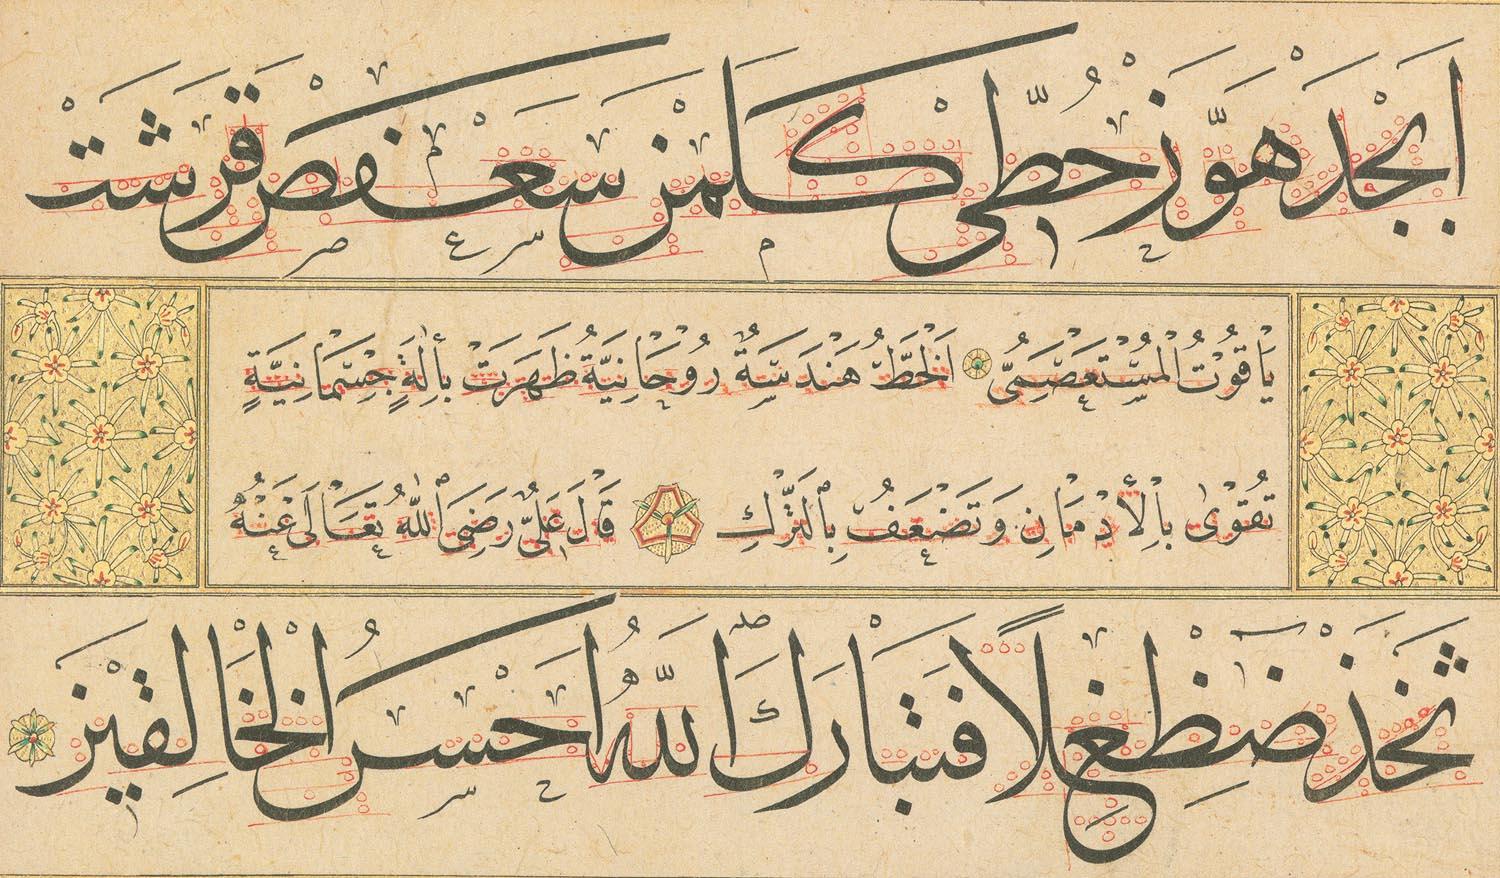 اَبْجَدْ هَوَّزْ حُطِّي كَلَمَنْ سَعْفَصْ قَرَشَتْ
يَاقُوْتُ الْمُسْتَعْصَمِيُّ اَلْخَطُّ هَنْدَسَةٌ رُوْحَانِيَّةٌ ظَهَرَتْ بِأٰلَةٍ جِسْمَانِيَّةٍ
تَقْوٰى بِالْأِدْمَانِ وَتَضْعَفُ بِالتَّرْكِ قَالَ عَلِيٌّ رَضِيَ اللّٰهُ تَعَالَى عَنْهُ
ثَخَذْ ضَظَغٍلًا فَتَبَارَكَ اللّٰهُ اَحْسَنُ الْخَالِقِيْنَ